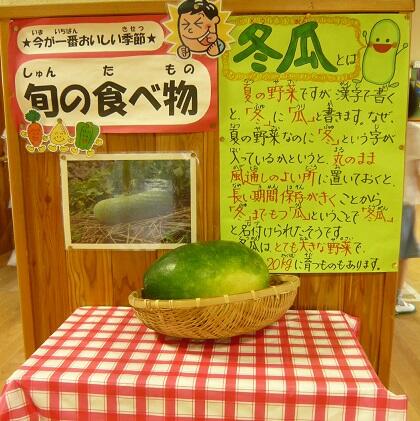 ★今が一番おいしい季節★
旬の食べ物
冬瓜とは
夏の野菜ですが、漢字で書く
と、「冬」に「瓜」と書きます。なぜ、
夏の野菜なのに「冬」という字が
入っているかというと、丸のまま
風通しのよい所に置いておくと、
長い期間保存がきくことから
「冬までもつ瓜」ということで「冬瓜」
と名付けられたそうです。
冬瓜はとても大きな野菜で、
20kgに育つものもあります。